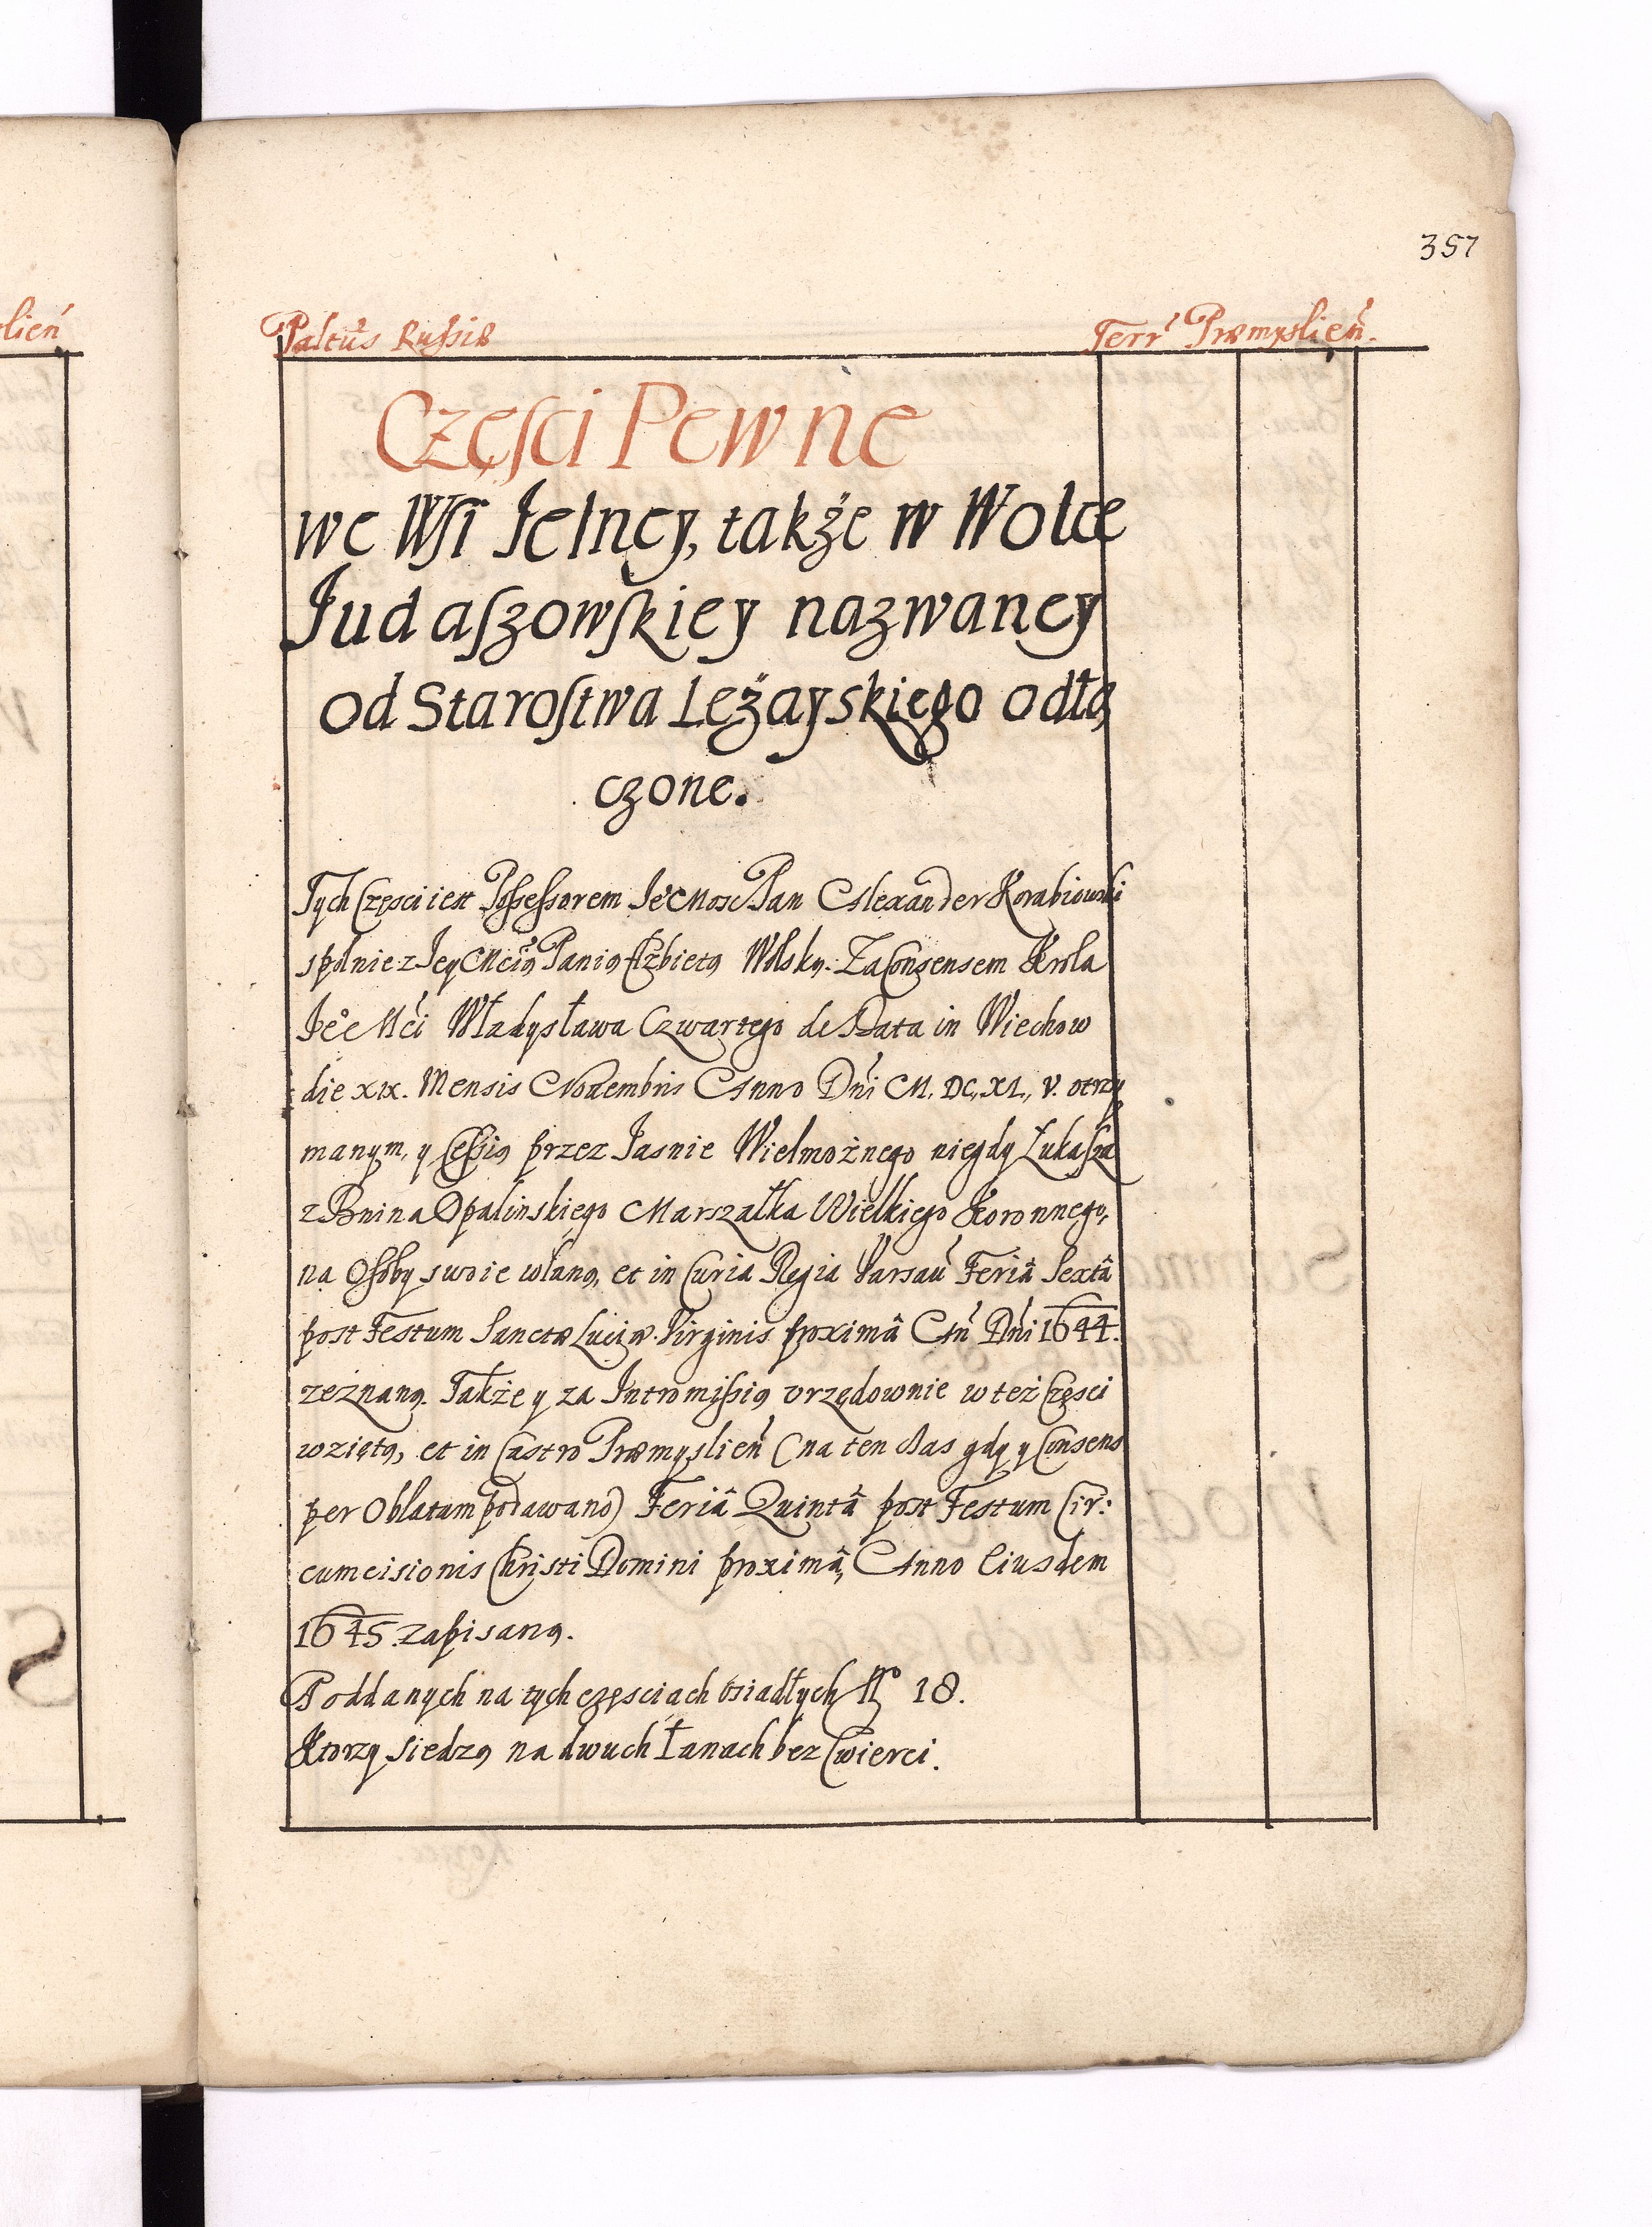 357
lień
Paltûs Russiæ Terr Præmysłień.
Częsci Pewne
we Wsi Jelney, także w Wolce
Judaszowskiey nazwaney
od Starostwa Leżayskiego odłą
czone.
Tych Częsci iest Possessorem Jeº Mosc Pan Alexander Korabiowski
spolnie z Jey Mcią Panią Elżbietą Wolską. Za Consensem Krola
Jeº Mci Władysława Czwartego de Data in Wiechow
die XIX. Mensis Novembris Anno Dni M. DC, XL, V. otrzy
manym, y Cessią przez Jasnie Wielmożnego niegdy Łukasza
z Bnina Opalinskiego Marszałka Wielkiego Koronnego,
na Osoby swoie wlaną, et in Curia Regia Varsau Feriâ Sextâ
post Festum Sanctæ Luciæ Virginis proximâ An Dni 1644.
zeznaną. Także y za Intromissią vrzędownie w też Częsci
wziętą, et in Castro Præmyslień (na ten czas gdy y Consens
per Oblatam podawano) Feriâ Quintâ post Festum Cir:
cumcisionis Christi Domini proximâ, Anno Eiusdem
1645. zapisaną.
Poddanych na tych częsciach osiadłych Nº 18.
Ktorzy siedzą na dwuch Łanach bez Cwierci.